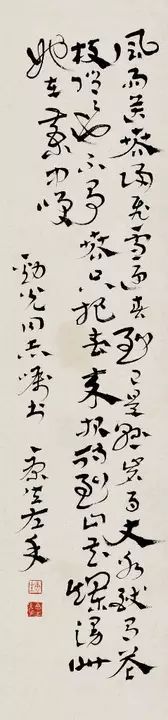 风雨送春归飞雪迎春到已是悬崖百丈冰犹有花
枝俏俏也不争春只把春来报待到山花烂漫时
她在丛中笑
劲光同志嘱书 康生左手